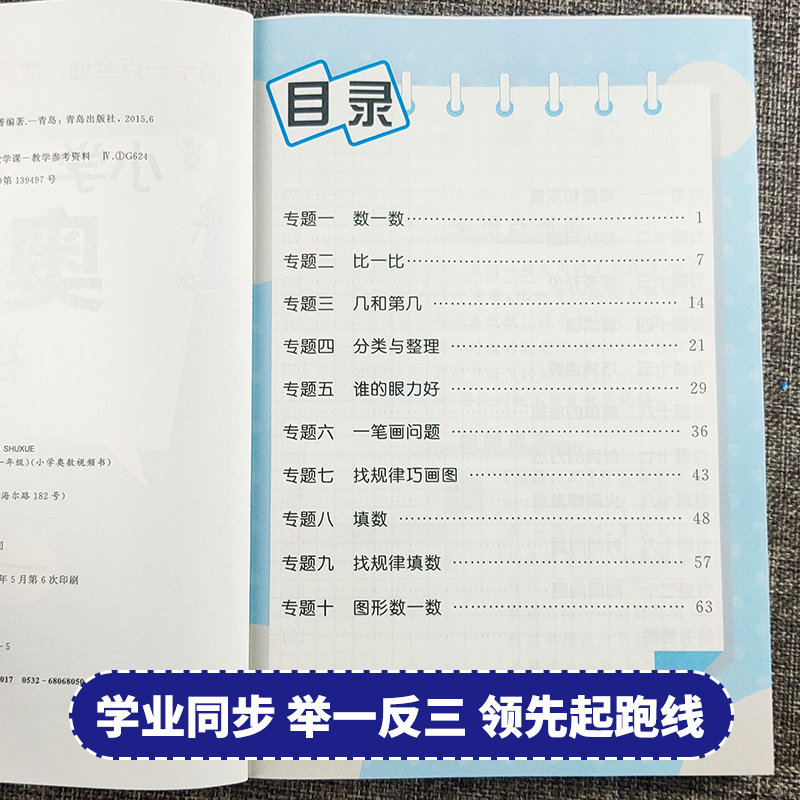 著编著.—青岛：青岛出版社，2015.6
学课－教学参考资料　Ⅳ.①G624
第 139497 号
SHUXUE
一年级)(小学奥数视频书)
海尔路 182 号)
年 5 月第 6 次印刷
－5
017　0532－68068050
目录
专题一　数一数 1
专题二　比一比 7
专题三　几和第几 14
专题四　分类与整理 21
专题五　谁的眼力好 29
专题六　一笔画问题 36
专题七　找规律巧画图 43
专题八　填数 48
专题九　找规律填数 57
专题十　图形数一数 63
学业同步 举一反三 领先起跑线